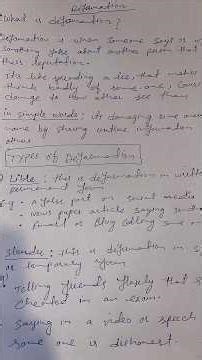 Defamation
What is defamation?
Defamation is when someone says or w
something false about another person that
their reputation.
It's like spreading a lie, that makes
think badly of someone, Caus
change to how other see them
in simple words: its damaging some one
name by sharing untrue information
others
Types of Defamation
: This is defamation in writte
permanent form
E.g • A false post on social media
• News paper article saying
• Email or Blog calling some
Slander: This is defamation in s
or temporary form
Telling friends falsely that s
cheated in an exam.
Saying in a video or speech
some one is dishonest.